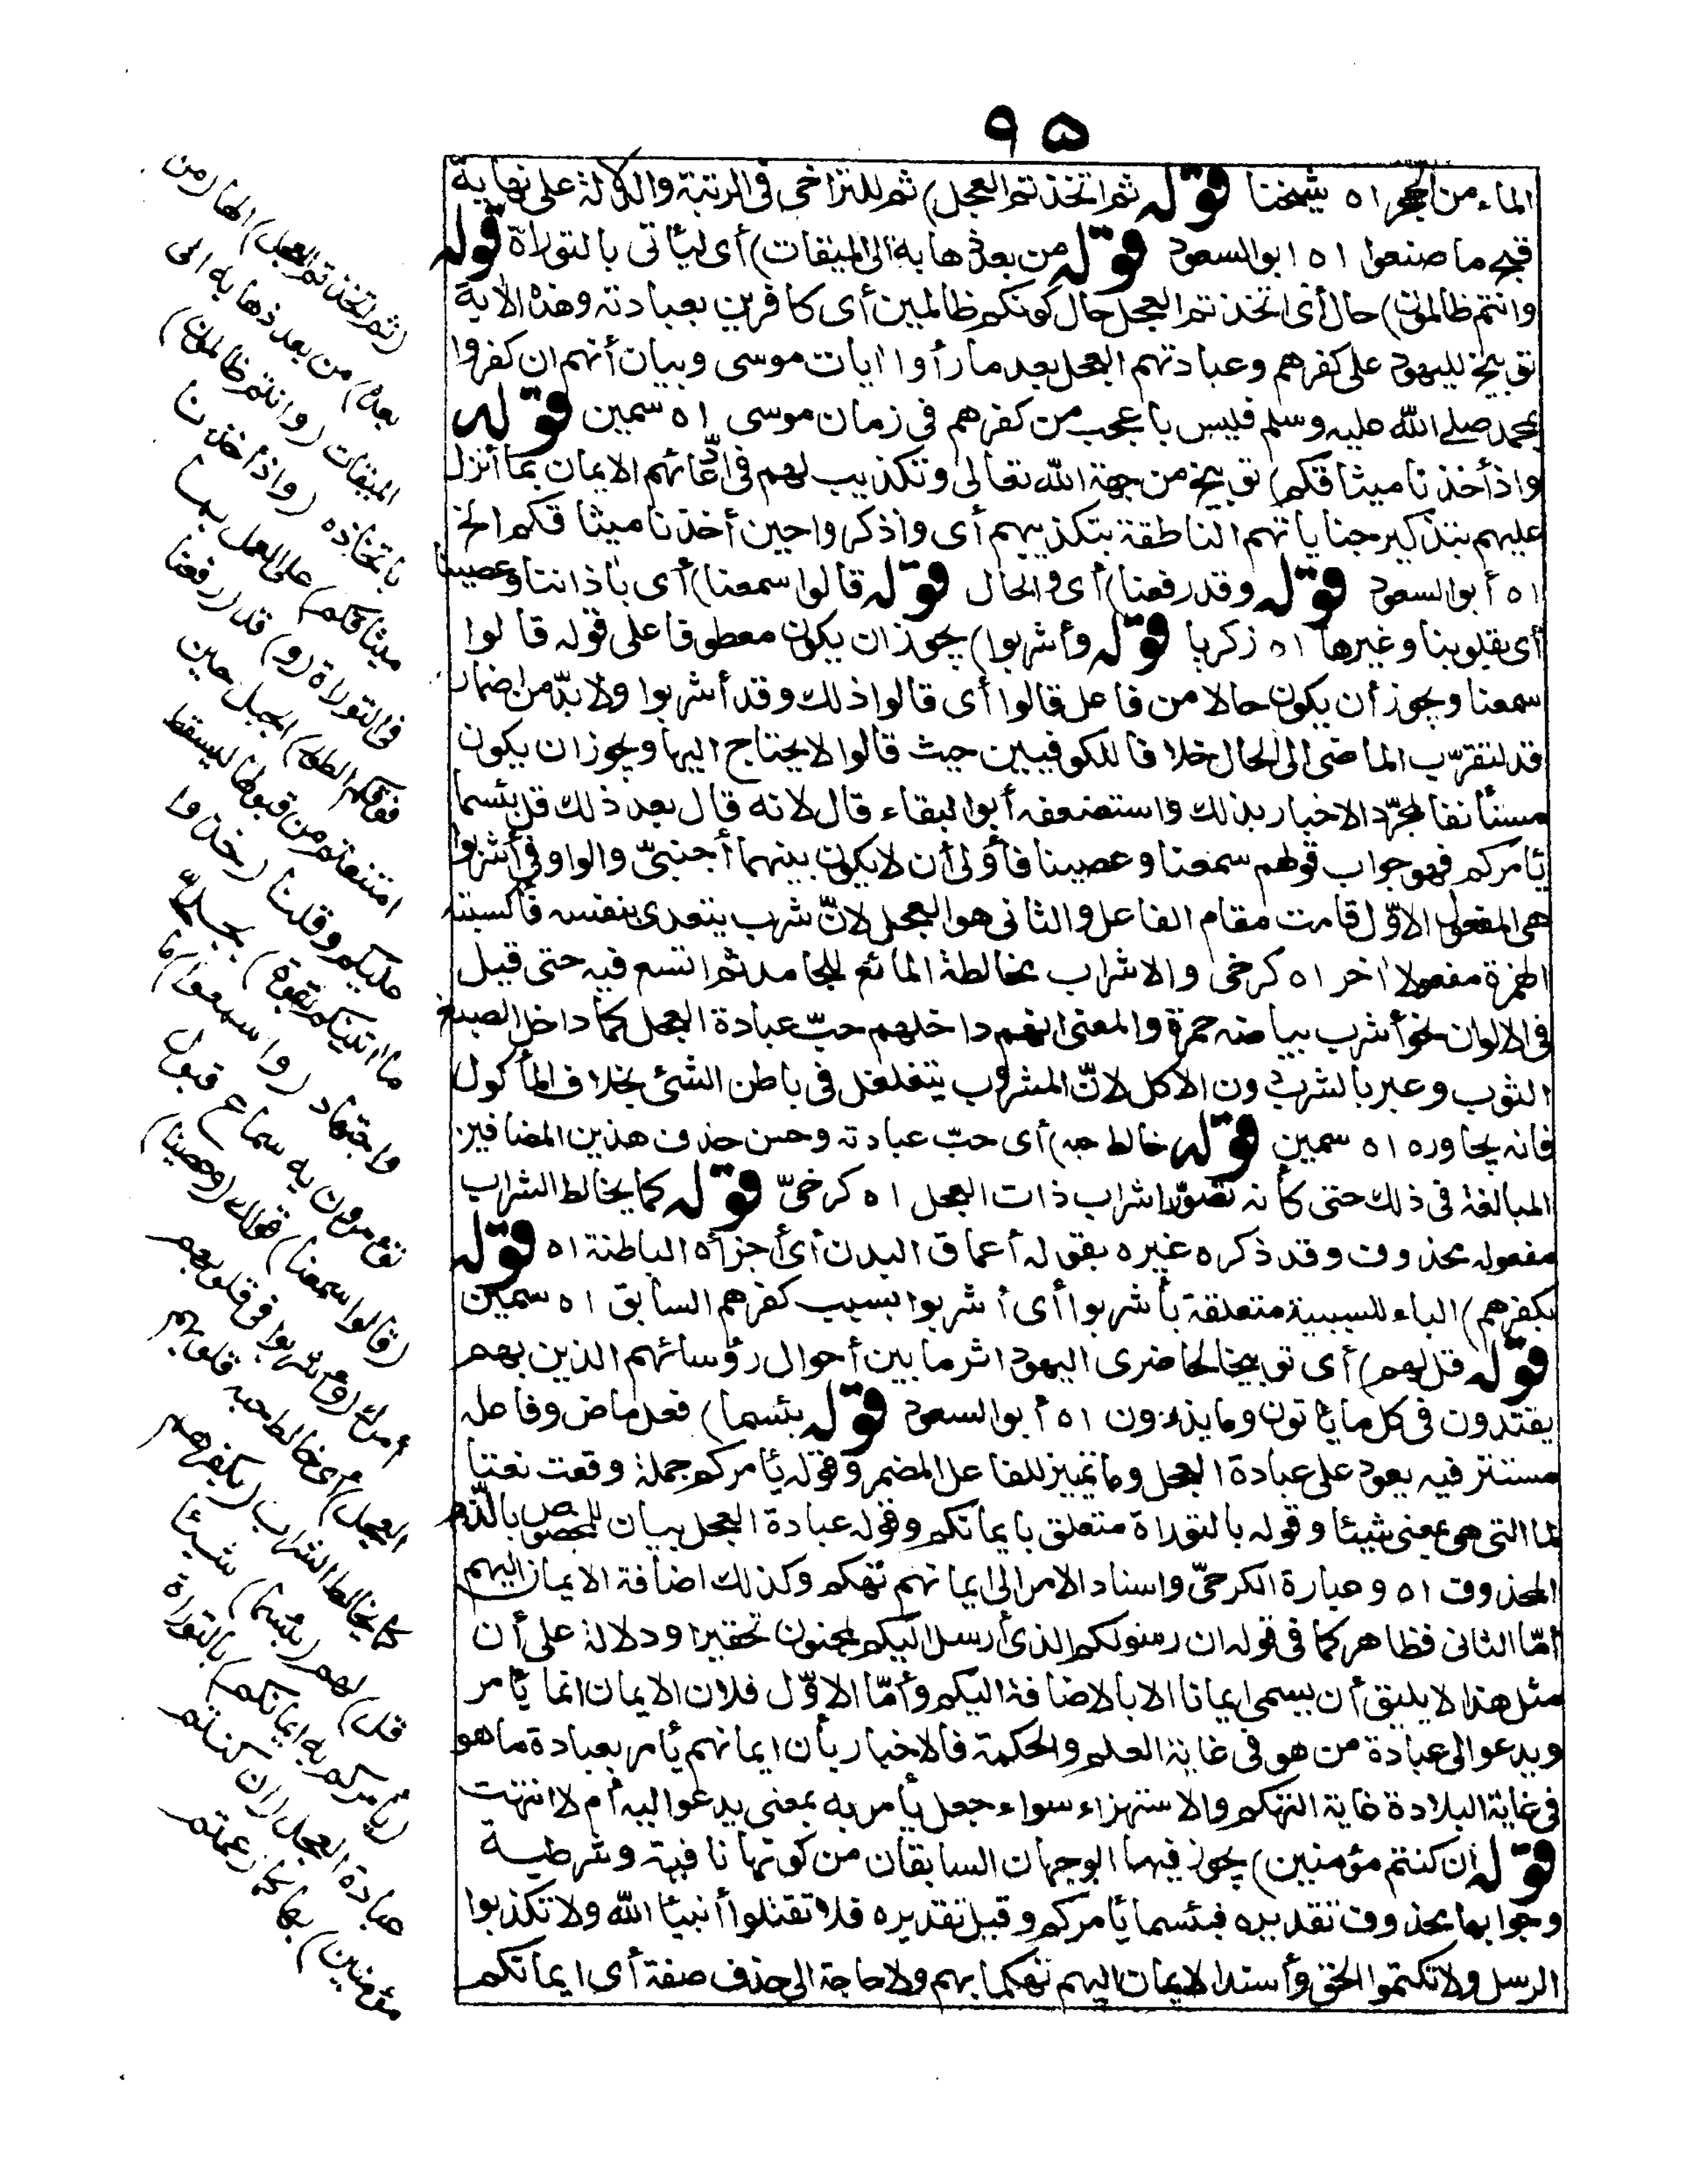 ٩٥
الماء من الحجر اه شيخنا قوله ثم اتخذتم العجل) ثم للتراخى فى الرتبة والدلالة على نهاية
قبح ما صنعوا اه ابو السعود قوله من بعد ذهابه الى الميقات) أى ليأتى بالتوراة قوله
وانتم ظالمون) حال أى اتخذتم العجل حال كونكم ظالمين أى كافرين بعبادته وهذه الآية
توبيخ لليهود على كفرهم وعبادتهم العجل بعد ما رأوا ايات موسى وبيان أنهم ان كفروا
بمحمد صلى الله عليه وسلم فليس باعجب من كفرهم فى زمان موسى اه سمين قوله
واذ أخذنا ميثاقكم) توبيخ من جهة الله تعالى وتكذيب لهم فى ادّعائهم الايمان بما أنزل
عليهم بتذكير جناياتهم الناطقة بتكذيبهم أى واذكروا حين أخذنا ميثاقكم الخ
اه أبو السعود قوله وقد رفعنا) أى والحال قوله قالوا سمعنا) أى بآذاننا وعصينا
أى بقلوبنا وغيرها اه زكريا قوله وأشربوا) يجوز ان يكون معطوفا على قوله قالوا
سمعنا ويجوز أن يكون حالا من فاعل قالوا أى قالوا ذلك وقد أشربوا ولا بدّ من اضمار
قد لتقرّب الماضى الى الحال خلافا للكوفيين حيث قالوا لا يحتاج اليها ويجوز ان يكون
مستأنفا لمجرّد الاخبار بذلك واستضعفه أبو البقاء قال لانه قال بعد ذلك قل بئسما
يأمركم فهو جواب قولهم سمعنا وعصينا فأولى أن لا يكون بينهما أجنبىّ والواو فى أشربوا
هى المفعول الاوّل قامت مقام الفاعل والثانى هو العجل لانّ شرب يتعدى بنفسه فأكسبته
الهمزة مفعولا اخر اه كرخى والاشراب مخالطة المائع للجامد ثم اتسع فيه حتى قيل
فى الالوان نحو أشرب بياضه حمرة والمعنى انهم داخلهم حبّ عبادة العجل كما داخل الصبغ
الثوب وعبر بالشرب دون الاكل لانّ المشروب يتغلغل فى باطن الشئ بخلاف المأكول
فانه يجاوره اه سمين قوله خالط حبه) أى حبّ عبادته وحسن حذف هذين المضافين
المبالغة فى ذلك حتى كأنه تصوّر اشراب ذات العجل اه كرخىّ قوله كما يخالط الشراب
مفعوله محذوف وقد ذكره غيره بقوله أعماق البدن أى أجزاه الباطنة اه قوله
بكفرهم) الباء للسببية متعلقة بأشربوا أى أشربوا بسبب كفرهم السابق اه سمين
قوله قل لهم) أى توبيخا لحاضرى اليهود اثر ما بين أحوال رؤسائهم الذين بهم
يقتدون فى كل ما يأتون وما يذرون اه أبو السعود قوله بئسما) فعل ماض وفاعله
مستتر فيه يعود على عبادة العجل وما تمييز للفاعل المضمر وقوله يأمركم جملة وقعت نعتا
لما التى هى بمعنى شيئا وقوله بالتوراة متعلق بايمانكم وقوله عبادة العجل بيان للمخصوص بالذم
المحذوف اه وعبارة الكرخىّ واسناد الامر الى ايمانهم تهكم وكذلك اضافة الايمان اليهم
أمّا الثانى فظاهر كما فى قوله ان رسولكم الذى أرسل اليكم لمجنون تحقيرا ودلالة على أن
مثل هذا لا يليق أن يسمى ايمانا الا بالاضافة اليكم وأمّا الاوّل فلان الايمان انما يأمر
ويدعو الى عبادة من هو فى غاية العلم والحكمة فالاخبار بأن ايمانهم يأمر بعبادة ما هو
فى غاية البلادة غاية التهكم والاستهزاء سواء جعل يأمر به بمعنى يدعو اليه أم لا انتهت
قوله ان كنتم مؤمنين) يجوز فيها الوجهان السابقان من كونها نافية وشرطية
وجوابها محذوف تقديره فبئسما يأمركم وقيل تقديره فلا تقتلوا أنبياء الله ولا تكذبوا
الرسل ولا تكتموا الحق وأسند الايمان اليهم تهكما بهم ولا حاجة الى حذف صفة أى ايمانكم
(ثم اتخذتم العجل) الها من
بعده) من بعد ذهابه الى
الميقات (وانتم ظالمون)
باتخاذه (واذ أخذنا
ميثاقكم) على العمل بما
فى التوراة (و) قد (رفعنا
فوقكم الطور) الجبل حين
امتنعتم من قبولها ليسقط
عليكم وقلنا (خذوا
ما اتيناكم بقوة) بجدّ
واجتهاد (واسمعوا) ما
تؤمرون به سماع قبول
(قالوا سمعنا) قولك (وعصينا)
أمرك (وأشربوا فى قلوبهم
العجل) أى خالط حبه قلوبهم
كما يخالط الشراب (بكفرهم
قل) لهم (بئسما) شيئا
(يأمركم به ايمانكم) بالتوراة
عبادة العجل (ان كنتم
مؤمنين) بها كما زعمتم